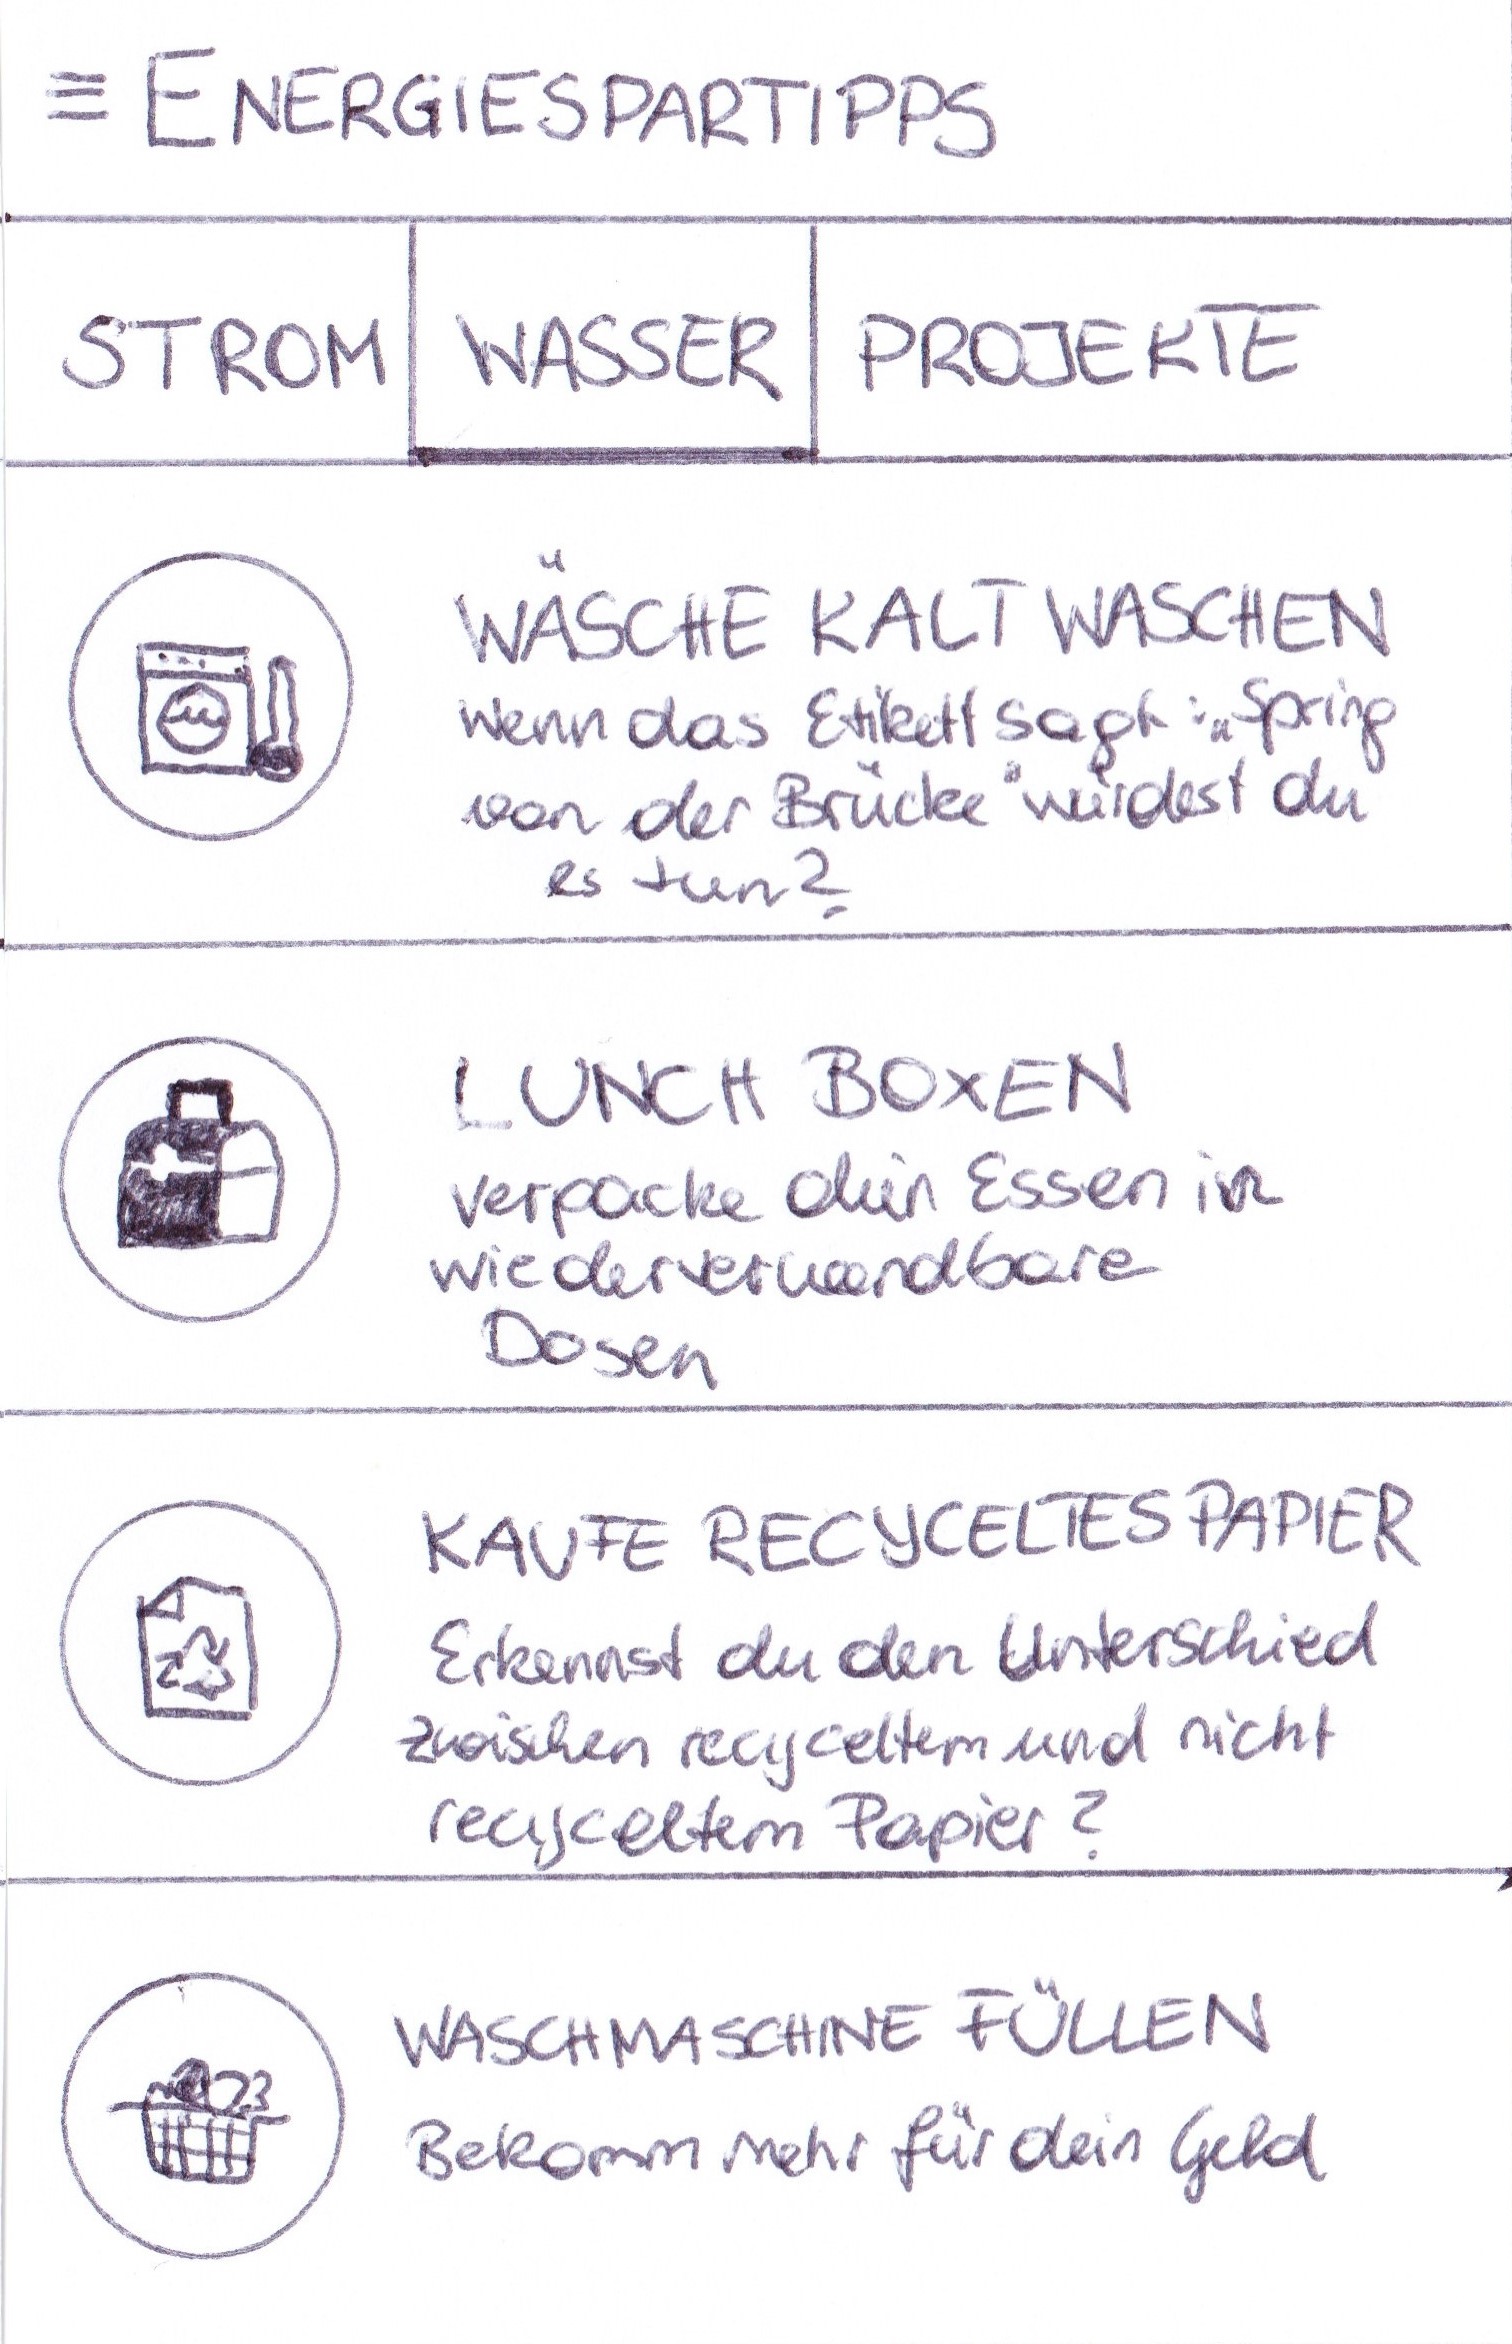 ENERGIESPARTIPPS
STROM WASSER PROJEKTE
WÄSCHE KALT WASCHEN
Wenn das Etikett sagt: „Spring
von der Brücke" würdest du
es tun?
LUNCH BOXEN
verpacke dein Essen in
wiederverwendbare
Dosen
KAUFE RECYCELTES PAPIER
Erkennst du den Unterschied
zwischen recyceltem und nicht
recyceltem Papier?
WASCHMASCHINE FÜLLEN
Bekomm mehr für dein Geld